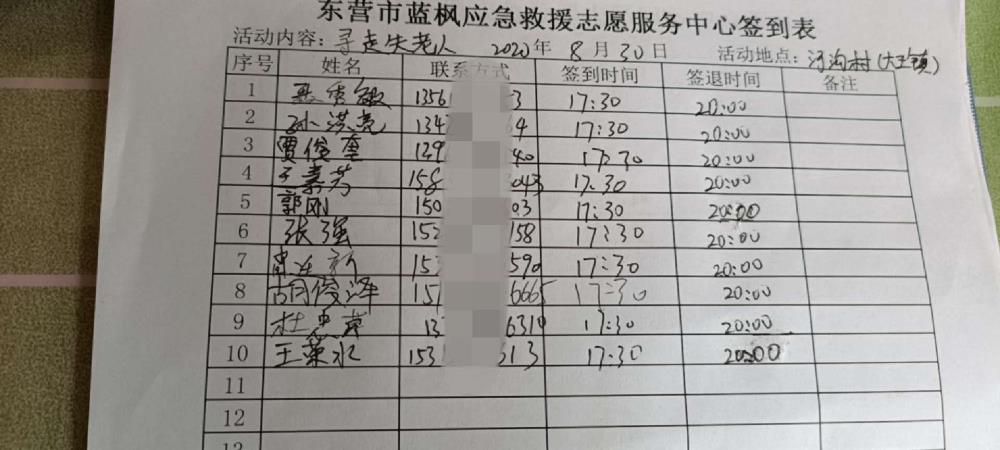 东营市蓝枫应急救援志愿服务中心签到表
活动内容：寻走失老人 2020年8月30日 活动地点：河沟村（大王镇）
序号 姓名 联系方式 签到时间 签退时间 备注
1 聂秀敏 13561 3 17:30 20:00
2 孙洪亮 134 64 17:30 20:00
3 贾俊奎 139 40 17:30 20:00
4 王嘉芳 158 043 17:30 20:00
5 郭刚 150 03 17:30 20:00
6 张强 152 158 17:30 20:00
7 新 153 590 17:30 20:00
8 胡俊泽 151 6665 17:30 20:00
9 杜忠英 13 6310 17:30 20:00
10 王荣水 153 313 17:30 20:00
11
12